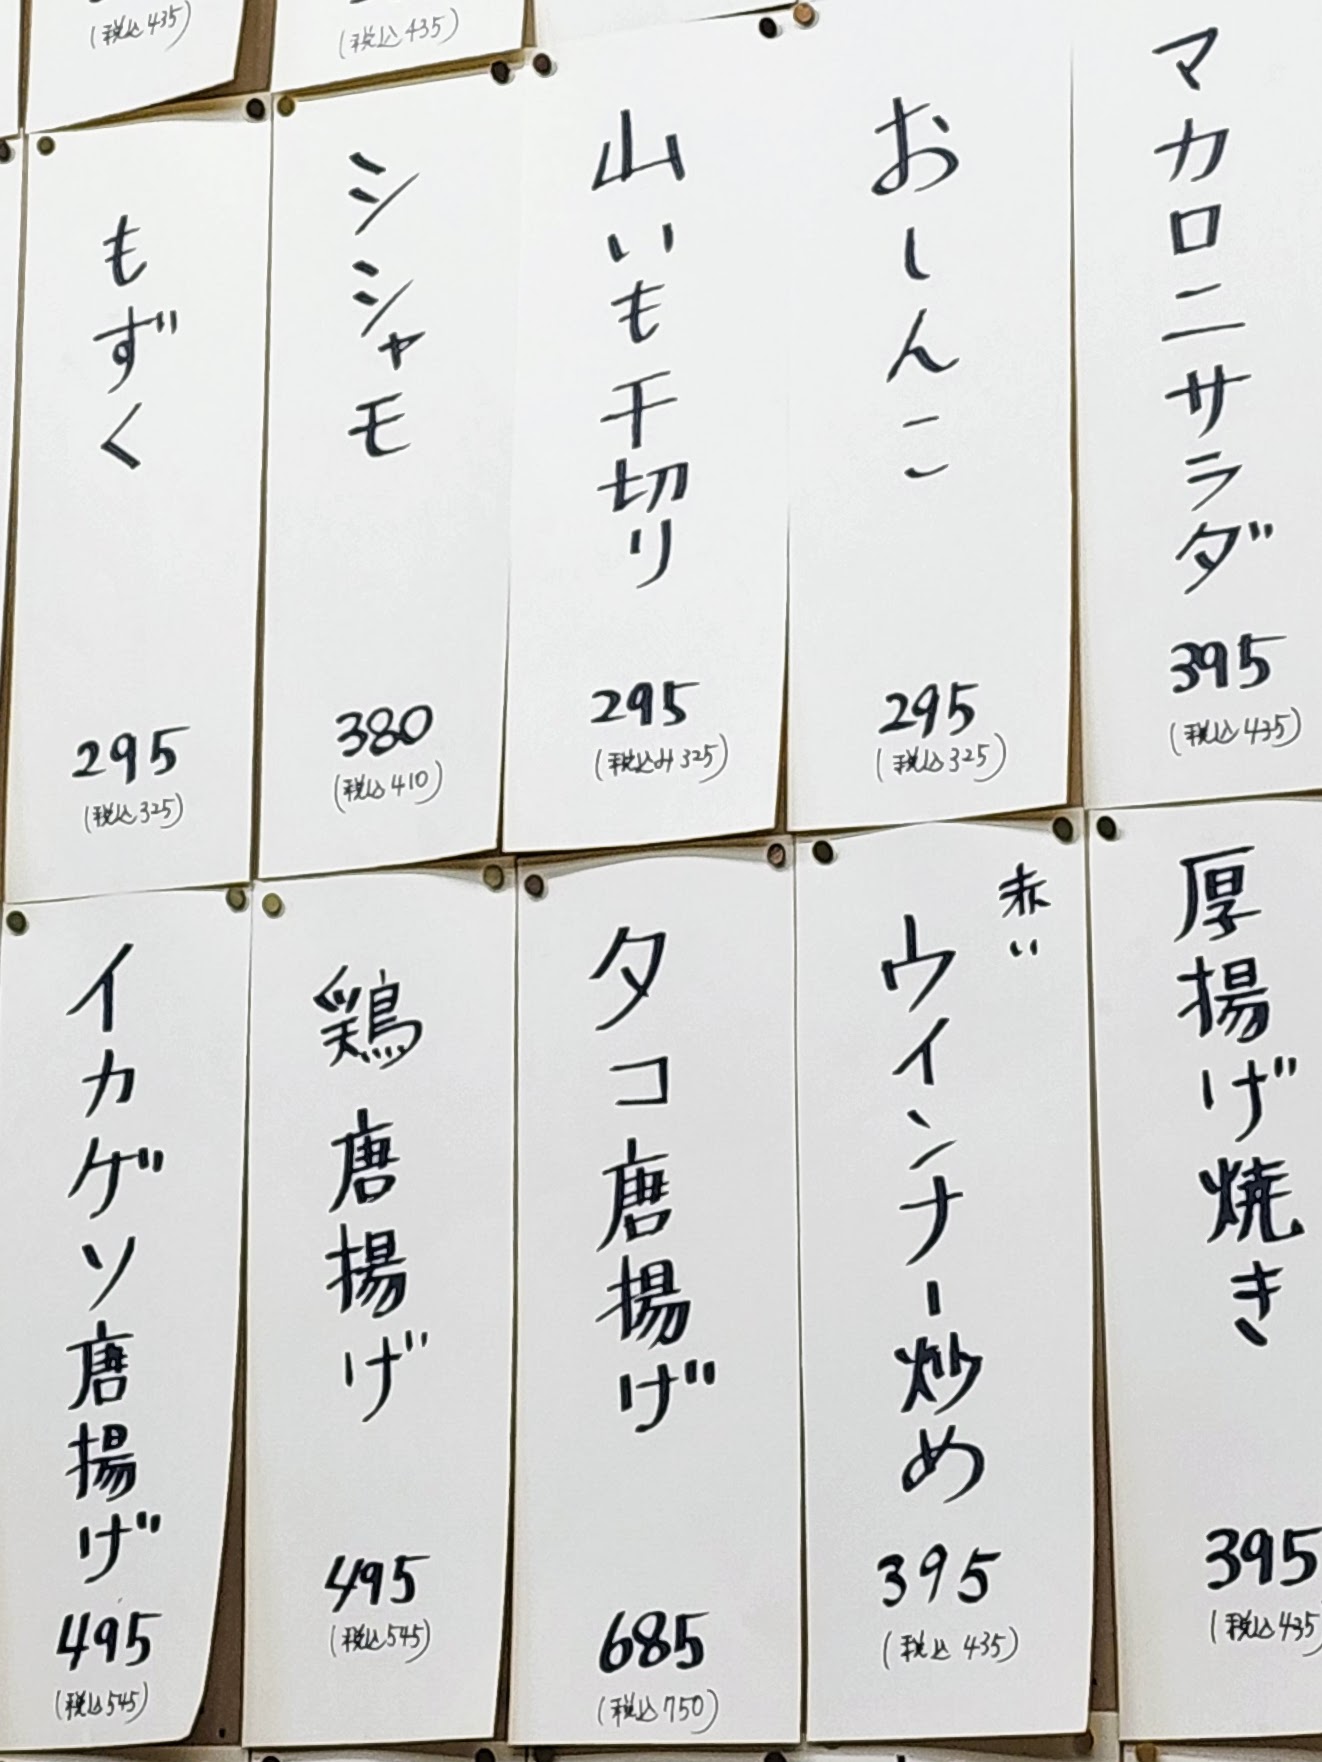 (税込435)
(税込435)
マカロニサラダ
395
(税込435)
おしんこ
295
(税込325)
山いも千切り
295
(税込み325)
シシャモ
380
(税込410)
もずく
295
(税込325)
厚揚げ焼き
395
(税込435
赤い
ウインナー炒め
395
(税込 435)
タコ唐揚げ
685
(税込750)
鶏唐揚げ
495
(税込545)
イカゲソ唐揚げ
495
(税込545)